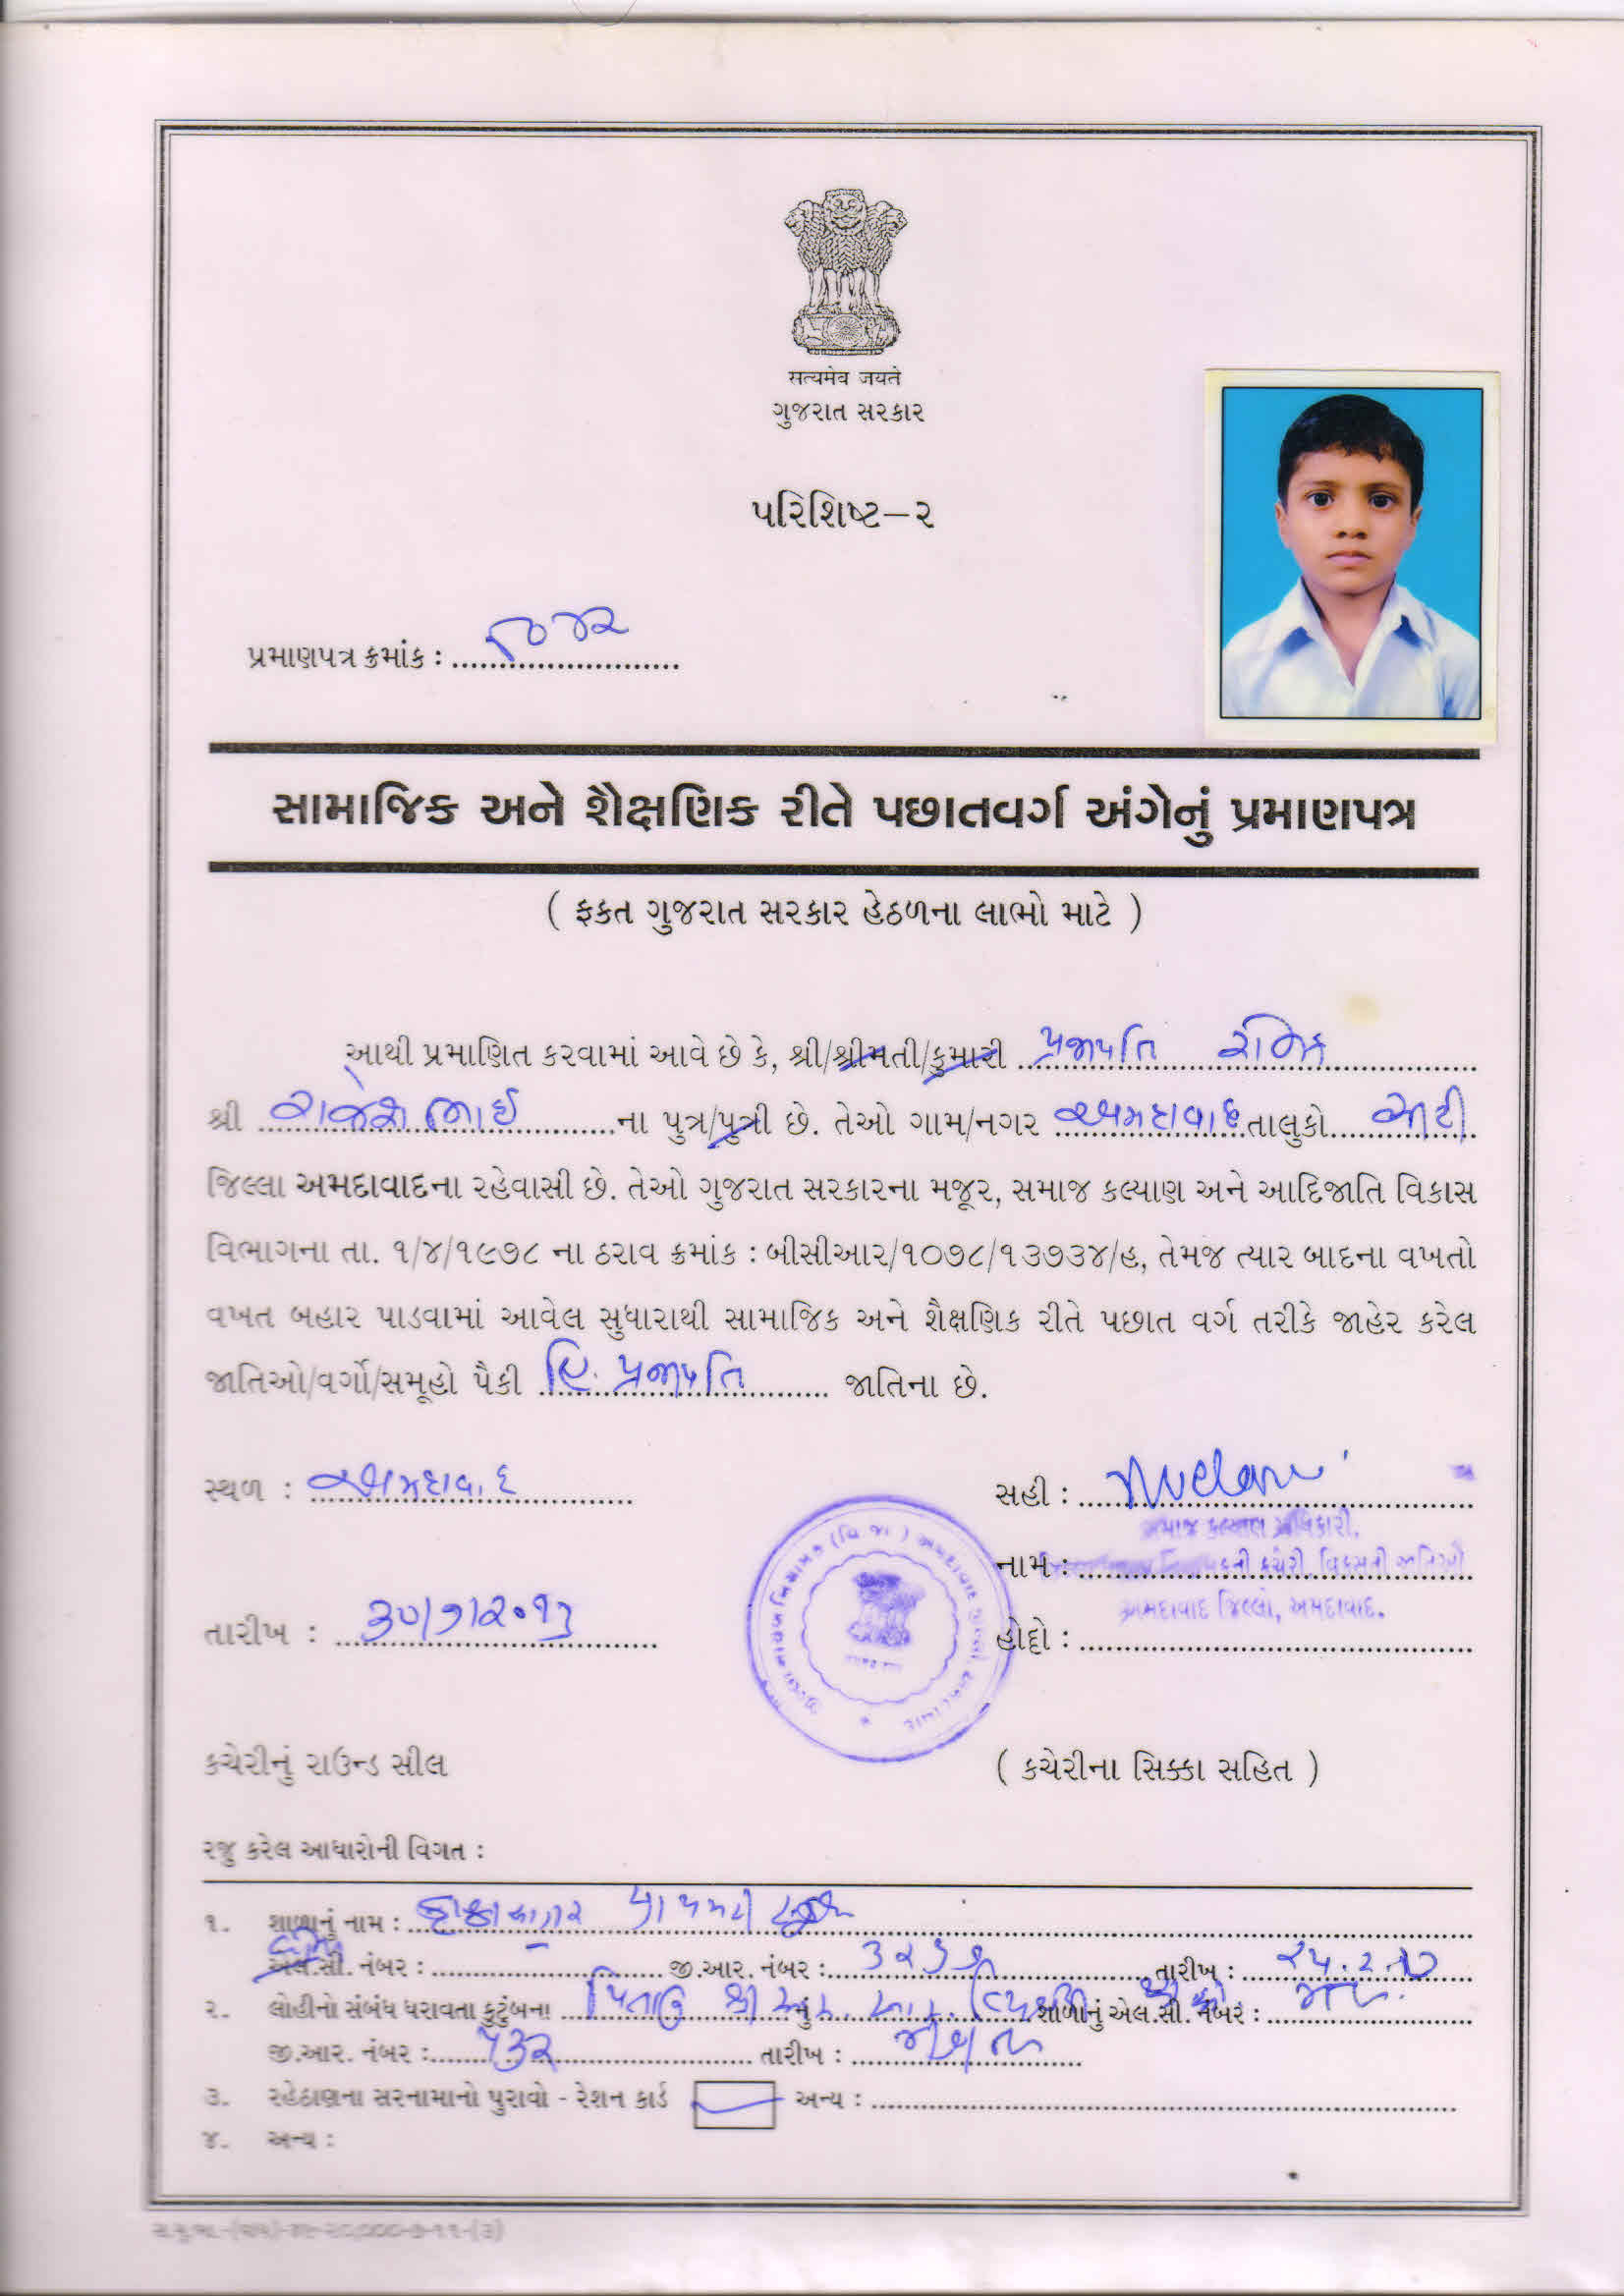 सत्यमेव जयते
ગુજરાત સરકાર
પરિશિષ્ટ–૨
પ્રમાણપત્ર ક્રમાંક :
સામાજિક અને શૈક્ષણિક રીતે પછાતવર્ગ અંગેનું પ્રમાણપત્ર
( ફકત ગુજરાત સરકાર હેઠળના લાભો માટે )
આથી પ્રમાણિત કરવામાં આવે છે કે, શ્રી/શ્રીમતી/કુમારી પ્રજાપતિ
શ્રી રાજેશભાઈ ના પુત્ર/પુત્રી છે. તેઓ ગામ/નગર અમદાવાદ તાલુકો સીટી
જિલ્લા અમદાવાદના રહેવાસી છે. તેઓ ગુજરાત સરકારના મજૂર, સમાજ કલ્યાણ અને આદિજાતિ વિકાસ
વિભાગના તા. ૧/૪/૧૯૭૮ ના ઠરાવ ક્રમાંક : બીસીઆર/૧૦૭૮/૧૩૭૩૪/હ, તેમજ ત્યાર બાદના વખતો
વખત બહાર પાડવામાં આવેલ સુધારાથી સામાજિક અને શૈક્ષણિક રીતે પછાત વર્ગ તરીકે જાહેર કરેલ
જાતિઓ/વર્ગો/સમૂહો પૈકી હિ. પ્રજાપતિ જાતિના છે.
સ્થળ : અમદાવાદ
સહી :
સમાજ કલ્યાણ અધિકારી,
નામ : કચેરી, વિકસતી જાતિઓ
અમદાવાદ જિલ્લો, અમદાવાદ.
તારીખ : ૩૦/૭/૨૦૧૩
હોદ્દો :
કચેરીનું રાઉન્ડ સીલ
( કચેરીના સિક્કા સહિત )
રજુ કરેલ આધારોની વિગત :
૧. શાળાનું નામ :
એલ.સી. નંબર : જી.આર. નંબર : તારીખ : ૨૫.૨.૧૦
૨. લોહીનો સંબંધ ધરાવતા કુટુંબના પિતા શ્રી નું શાળાનું એલ.સી. નંબર :
જી.આર. નંબર : ૫૩૨ તારીખ :
૩. રહેઠાણના સરનામાનો પુરાવો - રેશન કાર્ડ અન્ય :
૪. અન્ય :